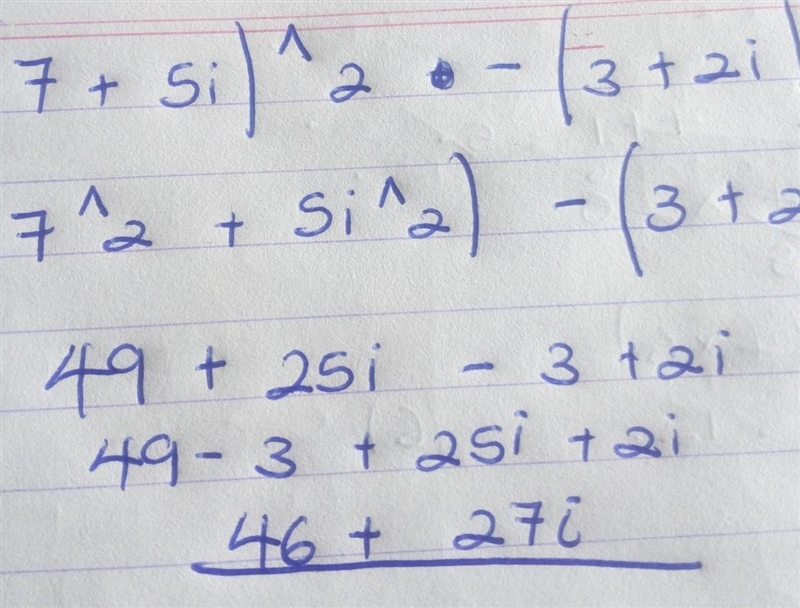 7 + 5i)^2 - (3 + 2i)
7^2 + 5i^2) - (3 + 2
49 + 25i - 3 + 2i
49 - 3 + 25i + 2i
46 + 27i